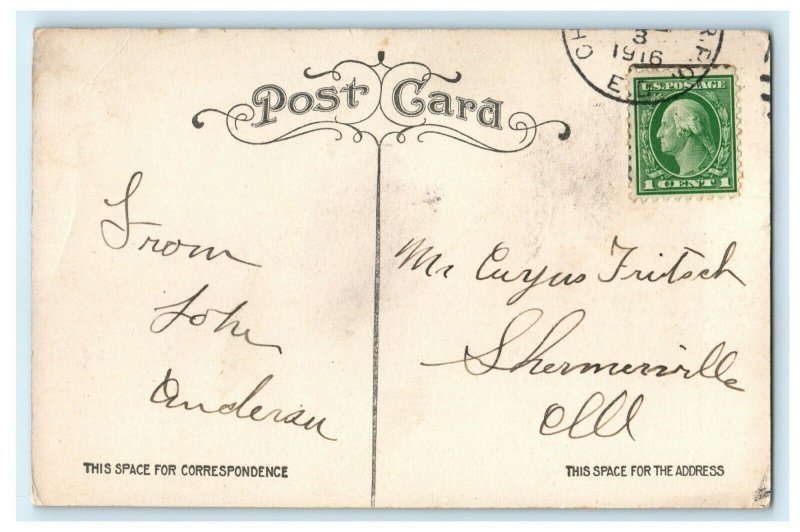 Post Card
CH R.P.O.
8
1916
E.D.
U.S. POSTAGE
1 CENT 1
From
John
Anderson
Mr Fritsch
Shermerville
Ill
THIS SPACE FOR CORRESPONDENCE
THIS SPACE FOR THE ADDRESS